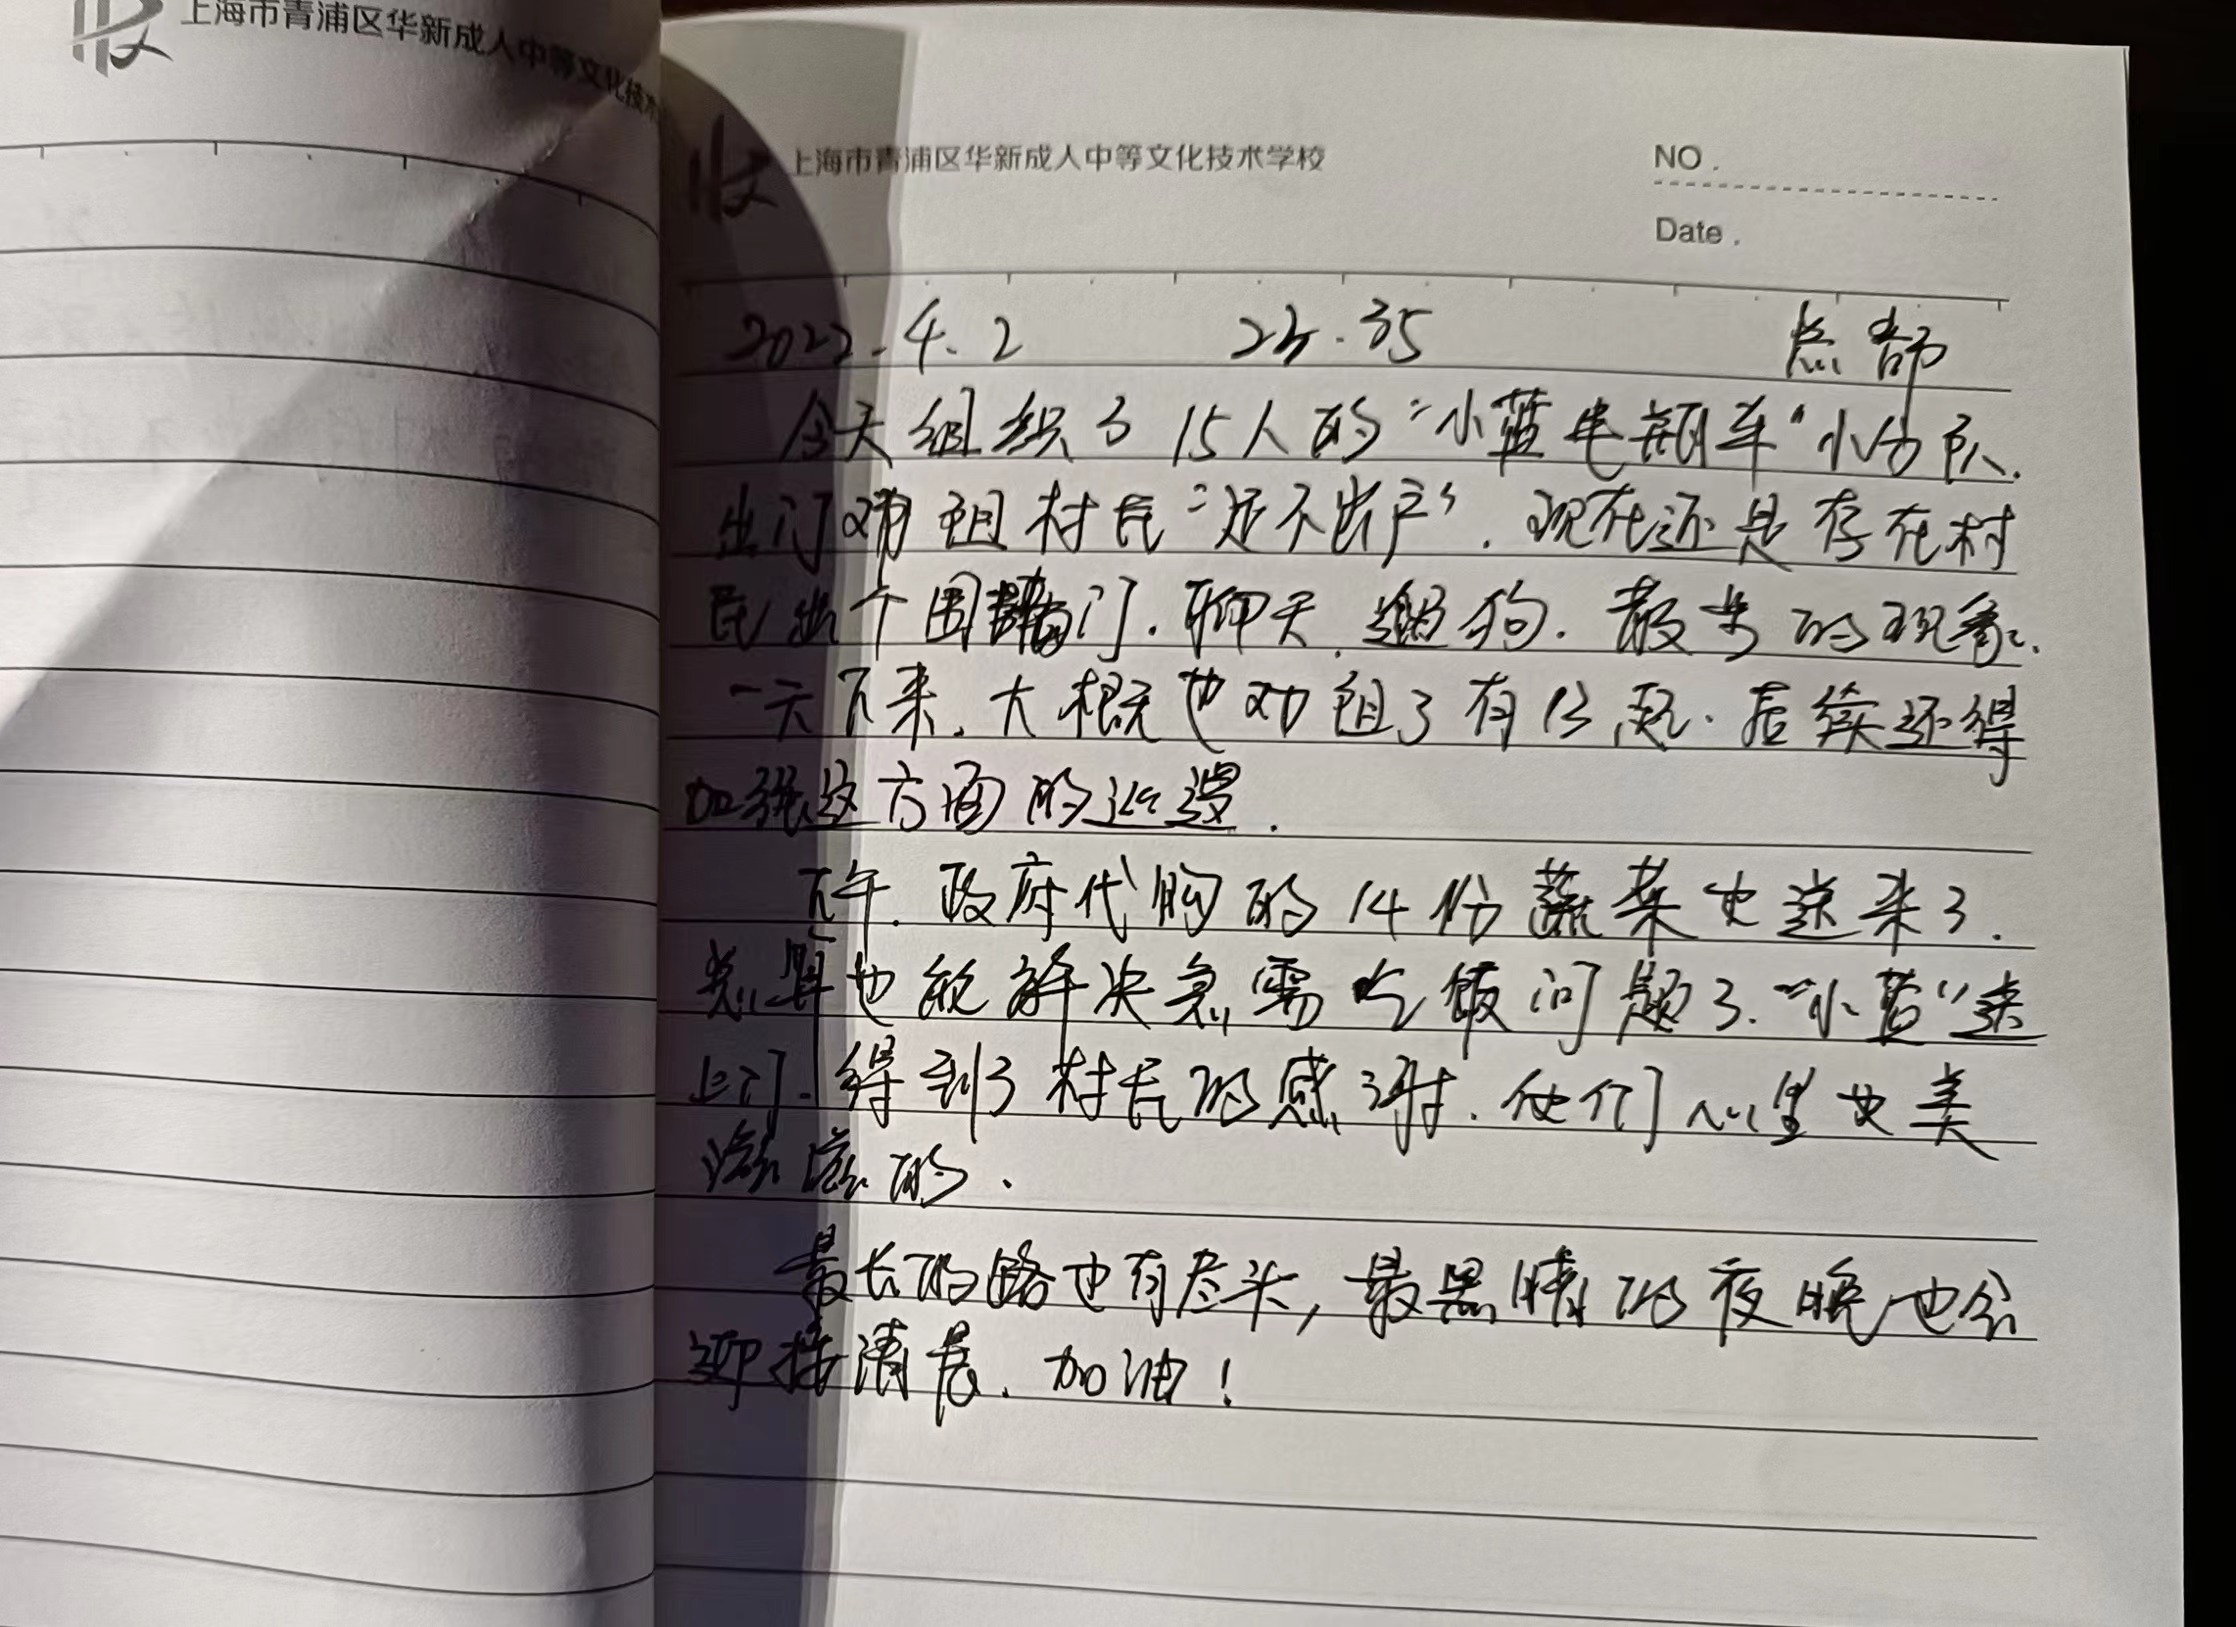 上海市青浦区华新成人中等文化技术
上海市青浦区华新成人中等文化技术学校
NO.
Date.
2022.4.2 23.35 总部
今天组织了15人的“小蓝电瓶车”小分队.
出门劝阻村民“足不出户”. 现在还是存在村
民出个围门. 聊天. 遛狗. 散步的现象.
一天下来. 大概也劝阻了有13起. 后续还得
加强这方面的巡逻.
下午. 政府代购的14份蔬菜也送来了.
总算也能解决急需吃饭问题了. “小蓝”送
上门. 得到了村民的感谢. 他们心里也美
滋滋的.
最长的路也有尽头, 最黑暗的夜晚也会
迎接清晨. 加油!